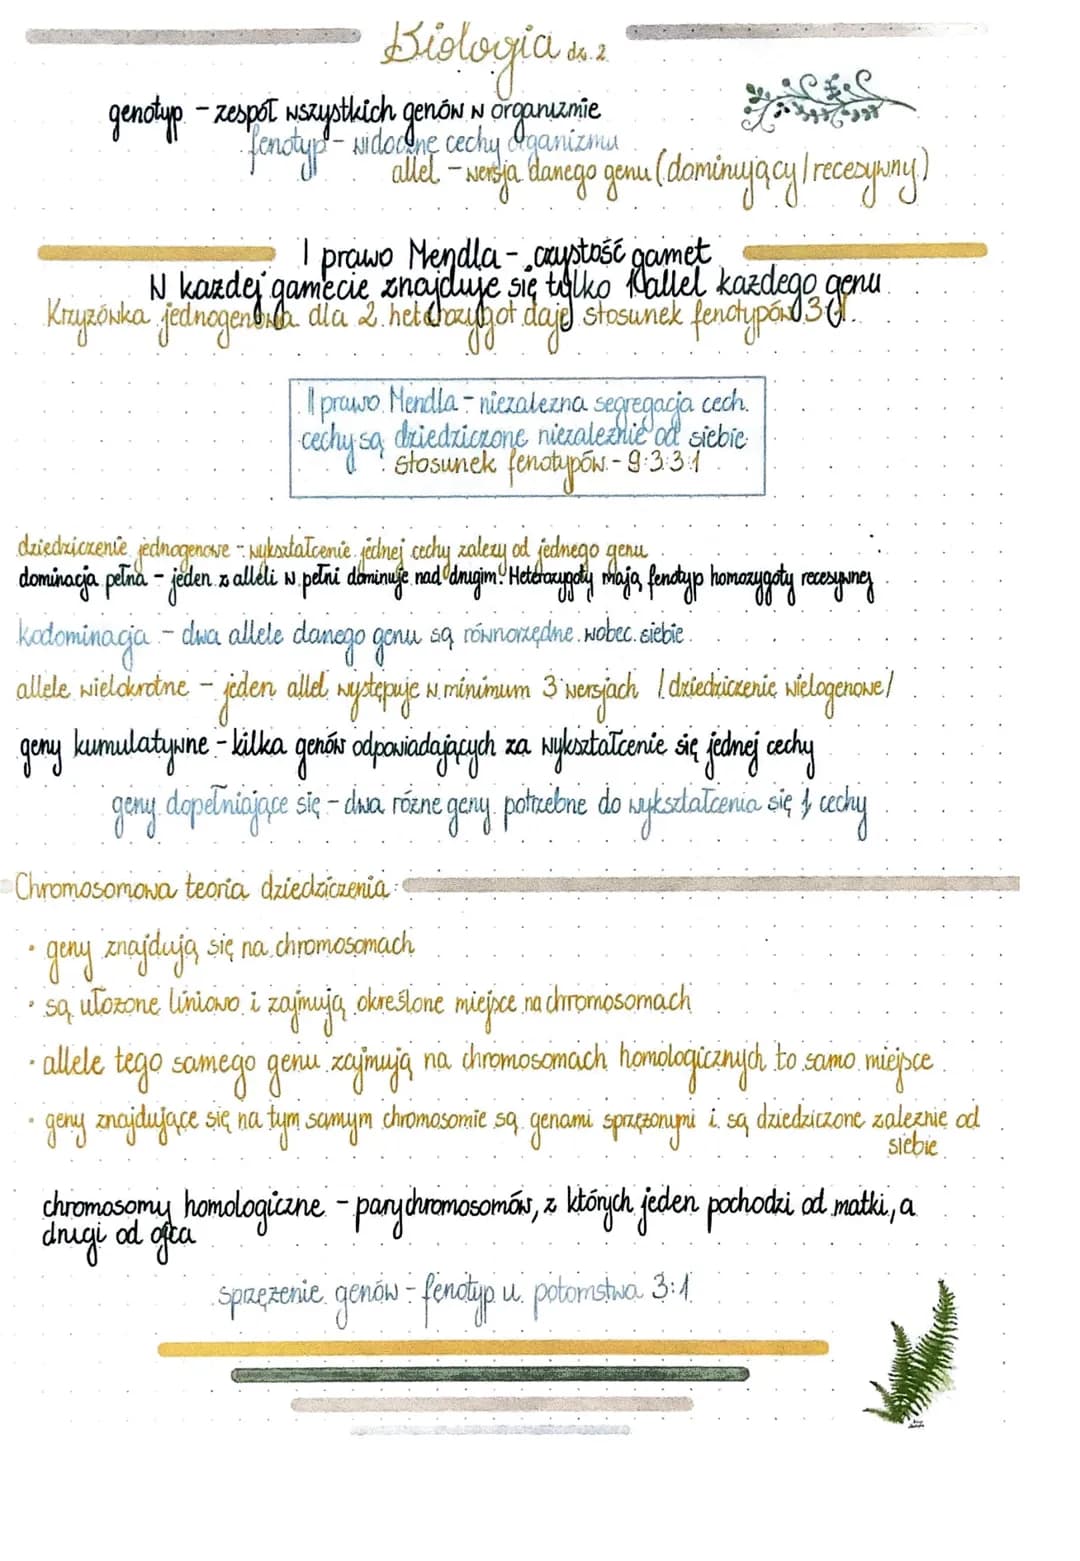 Biologia dz. 2
genotyp - zespół wszystkich genów w organizmie
fenotyp - widoczne cechy organizmu
allel - wersja danego genu (dominujący/recesywny)
I prawo Mendla - czystość gamet
W każdej gamecie znajduje się tylko 1 allel każdego genu.
Krzyżówka jednogenowa dla 2 heterozygot daje stosunek fenotypów 3:1.
II prawo Mendla - niezależna segregacja cech.
cechy są dziedziczone niezależnie od siebie
stosunek fenotypów - 9:3:3:1
dziedziczenie jednogenowe - wykształcenie jednej cechy zależy od jednego genu
dominacja pełna - jeden z alleli w pełni dominuje nad drugim. Heterozygoty mają fenotyp homozygoty recesywnej
kodominacja - dwa allele danego genu są równorzędne wobec siebie
allele wielokrotne - jeden allel występuje w minimum 3 wersjach /dziedziczenie wielogenowe/
geny kumulatywne - kilka genów odpowiadających za wykształcenie się jednej cechy
geny dopełniające się - dwa różne geny potrzebne do wykształcenia się 1 cechy
Chromosomowa teoria dziedziczenia:
• geny znajdują się na chromosomach
• są ułożone liniowo i zajmują określone miejsce na chromosomach
• allele tego samego genu zajmują na chromosomach homologicznych to samo miejsce
• geny znajdujące się na tym samym chromosomie są genami sprzężonymi i są dziedziczone zależnie od
siebie
chromosomy homologiczne - pary chromosomów, z których jeden pochodzi od matki, a
drugi od ojca
sprzężenie genów - fenotyp u potomstwa 3:1